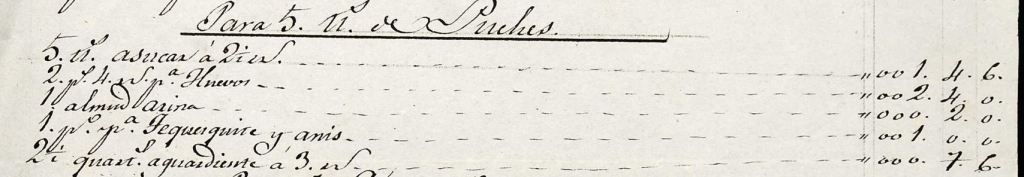 Para 5. ll.s de Puches.
5. ll.s asucar á 2½ rs. "001. 4. 6.
2. ps. 4. rs. pa. Huevos "002. 4. 0.
1. almud arina "000. 2. 0.
1. po. pa. Tequesquite y anis "001. 0. 0.
2½ quart.s aguardiente á 3. rs. "000. 7. 6.